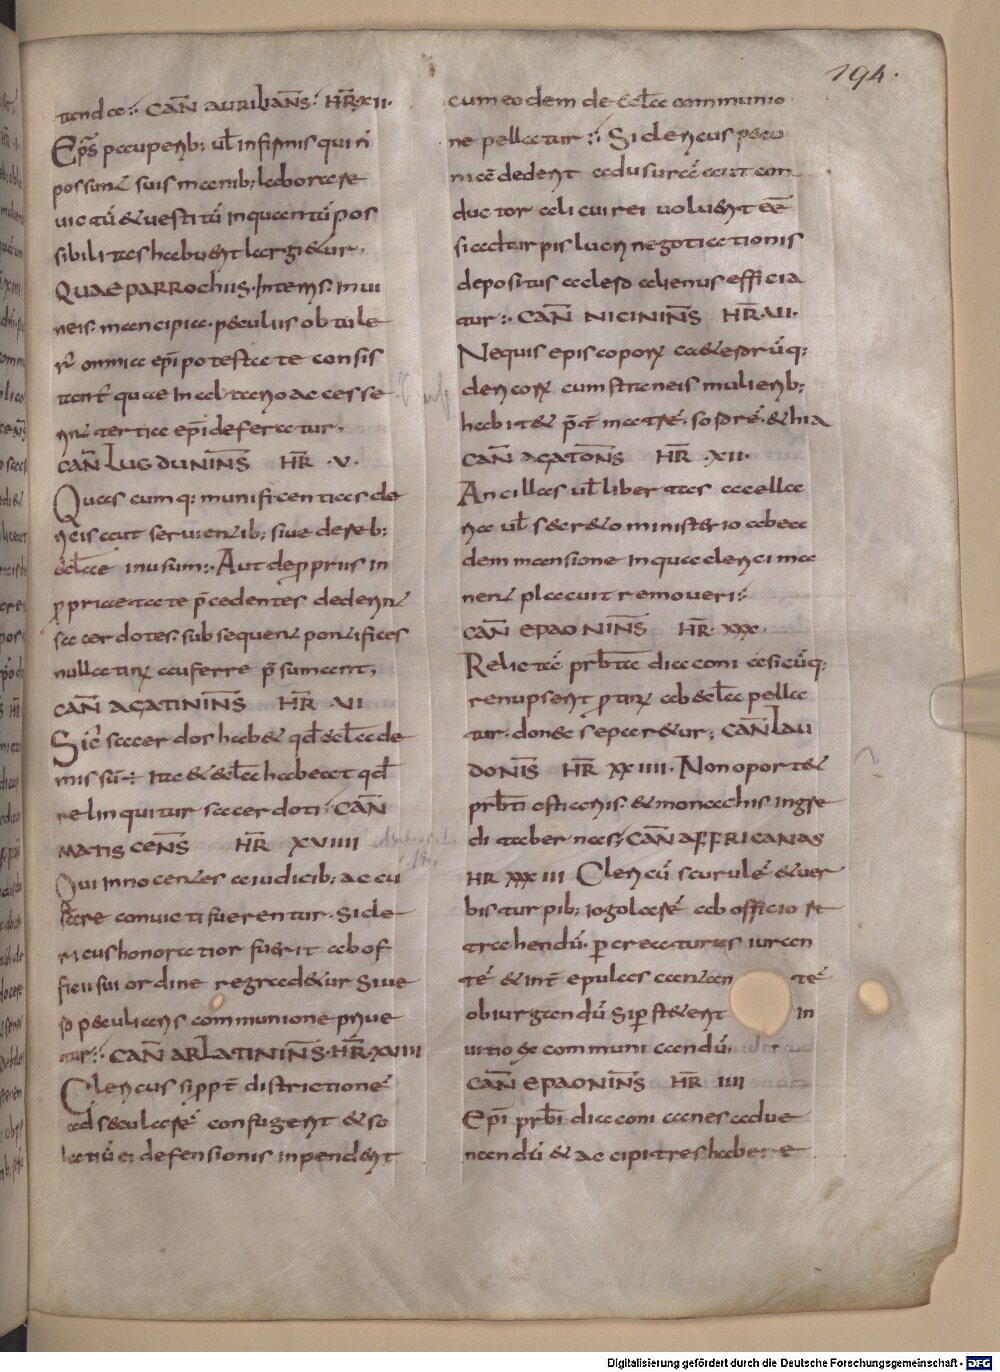 194.
tendae:. CAÑ AURILIAÑS: HR̄·XII·
Ep̄s pauperib; ul̄ infirmis qui ñ
possunt suis manib; laborare
uictū & uestitū inquantū pos
sibilitas habuerit largiatur.
QUAE PARROCHIIS. In terris. in ui
neis. mancipia. peculiis obtule
r̄ omnia ep̄i potestate consis
tant̄ quae in altario accesse
rint tertia ep̄i deferatur.
CAÑ LUGDUNINS̄ HR̄ ·V·
Quas cumq: munificentias de
ricis aut seruientib; siue de reb;
eccl̄ae in usum:. Aut de propriis in
proprietate p̄cedentes dederint
sacerdotes. subsequent pontifices
nullatenus auferre p̄sumant,
CAÑ AGATININS̄ HR̄ ·VI
Sic̄ sacerdos habet qđ eccl̄ae de
missū:. ita & eccl̄a habeat qđ
relinquitur sacerdoti; CAÑ
MATISCENS̄ HR̄ XVIIII
Qui innocentes a iudicib; accu
sare conuicti fuerentur. Si cle
ricus honoratior fuerit ab of
ficii sui ordine regradetur Siue
so peculiaris communione priue
tur:. CAÑ ARLATININS̄·HR̄·XVIIII
Clericus si ppt̄ districtionē
ad seculare confugerit & so
latiū ei defensionis inpenderit
cum eodem de eccl̄ae communio
ne pellatur:. Si clericus pecu
niā dederit ad usurā aut con
ductor alicui rei uoluerit eē
si ad turpis lucri negotiationis
depositus a clero alienus efficia
tur:. CAÑ NICININS̄ HR̄·VI·
Ne quis episcoporum
clericorum cum straneis mulierib;
habitet p̄t̄ matrē. sororē. & thia
CAÑ AGATONS̄ HR̄ ·XII·
Ancillas ul̄ libertas a cella
ria ul̄ secreto ministerio ab ea
dem mansione in qua clerici ma
nent placuit remoueri:.
CAÑ EPAONINS̄ HR̄· XXX·
Relictā prb̄tae diaconi
renupserit ptinus ab eccl̄ae pella
tur. donec separetur; CAÑ LAU
DONIS̄ HR̄ XXIIII· Non oportet
prb̄ti & monachis ingre
di tabernas; CAÑ AFFRICANAS
HR XXXIII Clericū scurulē & uer
bis turpib; ioglare ab officio re
trahendū. p creaturas iuran
tē & int̄ epulas cantan tē
obiurgandū Si pstiterit in
uitio excommunicandū.
CAÑ EPAONINS̄ HR̄ IIII
Ep̄i prb̄i diaconi canes ad ue
nandū & accipitres habere
Digitalisierung gefördert durch die Deutsche Forschungsgemeinschaft - DFG